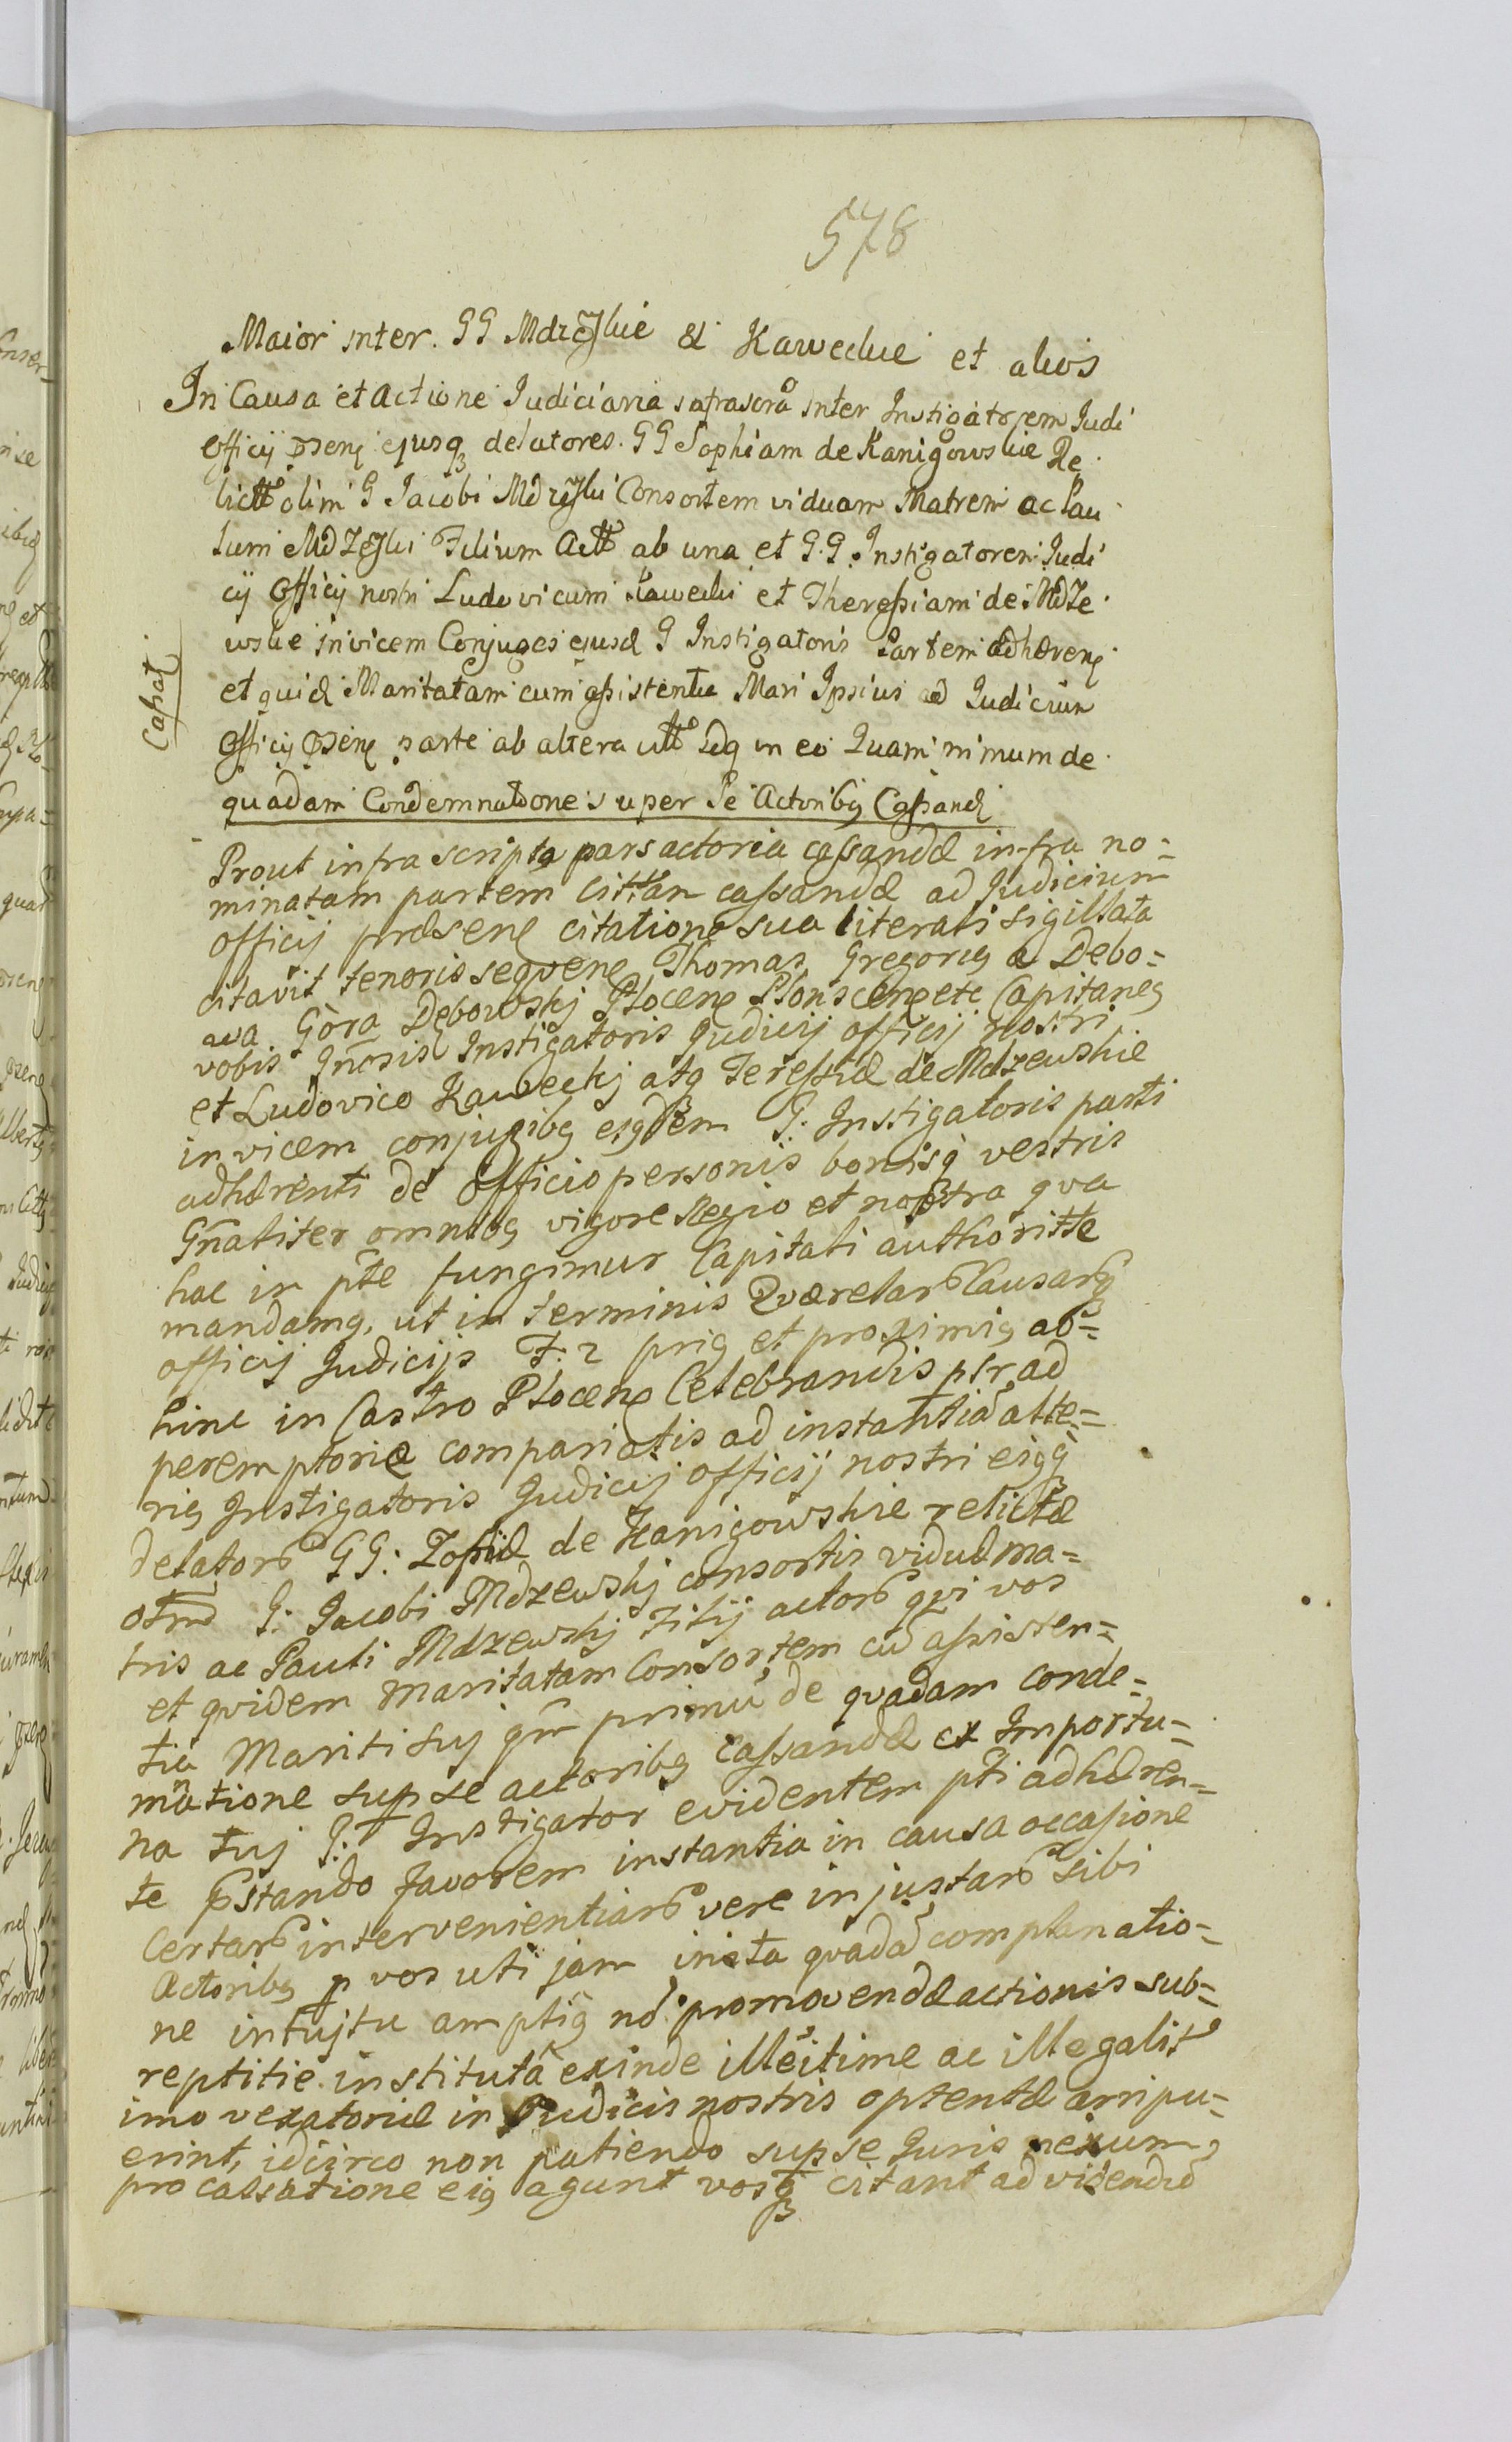 578
Maior inter GG Mdzeskie & Kaweckie et alios
In Causa et Actione Judiciaria infrascrã inter Instigatorem Judi
Officij pseng ejusq delatores GG Sophiam de Kanigowskie Re
lictã olim G Jacobi Mdzeski Consortem viduam Matrem ac Pau
lum Mdzeski Filium Actt ab una et G.G. Instigatorem Judi
cij Officij nostri Ludovicum Kawecki et Theressiam de Mdze
wskie invicem Conjuges ejusd G Instigatoris Partem adhæreng
et quid Maritatam cum assistentia Mari Ipsius ad Judicium
Officij pseng parte ab altera citt idq in eo Quam nimum de
quadam Condemnatione super Se Actoribg Cassand
Cassat
Prout infra scripta pars actoria cassandæ infra no=
minatam partem Cittam cassandæ ad Judicium
officij præseng citatione sua literali sigillata
citavit tenoris seqveng Thomas Gregorig a Debo=
wa Góra Dębowskj Płoceng Płonsceng etc Capitaneg
vobis Gñosis Instigatoris Judicij officij nostri
et Ludovico Kaweckj atq Teressiæ de Mdzewskie
invicem conjugibg ejgdem G: Instigatoris parti
adhærenti de officio personis bonisq vestris
Gñaliter omnibg vigore Regio et nostra qva
hac in pte fungimur Capitali authoritte
mandamg, ut in terminis Qværelar Causarq
officij Judicijs F: 2 prig et proximig ab=
hinc in Castro Płoceng Celebrandis plr ad
peremptorie compariatis ad instantiã atte=
rig Instigatoris Judicij officij nostri ejgq
delator GG: Zofiiæ de Kanigowskie relictæ
otmd G: Jacobi Mdzewskj consortis viduæ ma=
tris ac Pauli Mdzewskj Filij actor qvi vos
et qvidem maritatam Consortem cũ assisten=
tia Mariti suj qm primũ de qvadam conde=
mãtione sup se actoribg cassandæ ex Importu=
na tuj G: Instigator evidentem pti adhæren=
te pstando favorem instantia in causa occasione
Certar intervenientiar vere injustar sibi
Actoribg p vos uti jam inita qvadã complanatio=
ne intujtu amptig nõ promovendæ actionis sub=
reptitie institutã exinde illeitime ac illegalit
imo vexatoriæ in Judicis nostris optentæ arripu=
erint, idcirco non patiendo sup se Juris nexum,
pro calsatione ejg agunt vosq citant ad videndũ